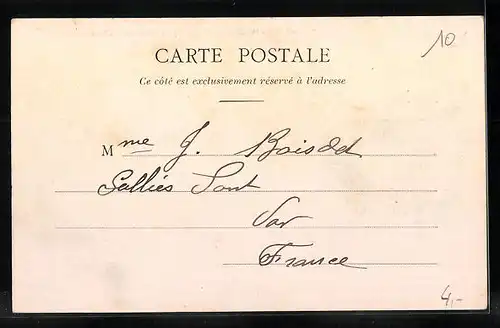 CARTE POSTALE
10
Ce côté est exclusivement réservé à l'adresse
Mme J. Boisdet
Solliès Pont
Var
France
4,-